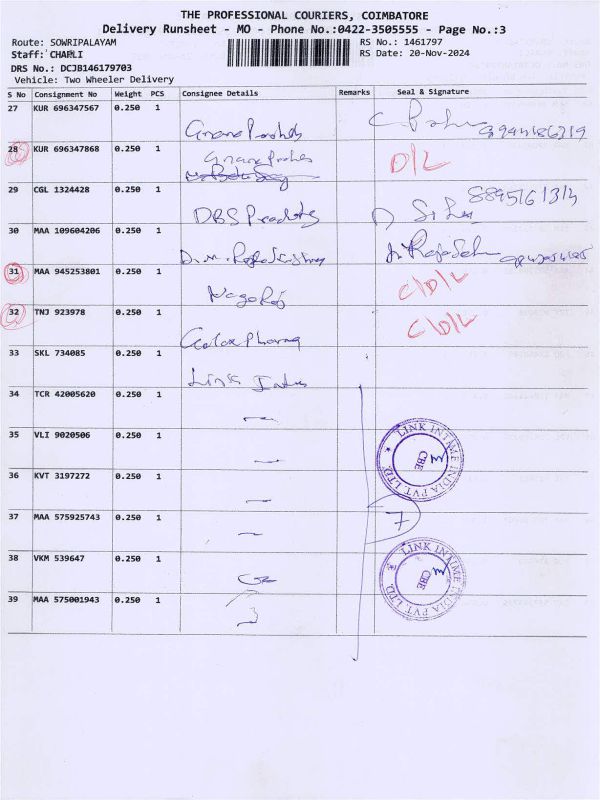 THE PROFESSIONAL COURIERS, COIMBATORE
Delivery Runsheet - MO - Phone No.:0422-3505555 - Page No.:3
Route: SOWRIPALAYAM RS No.: 1461797
Staff: CHARLI RS Date: 20-Nov-2024
DRS No.: DCJB146179703
Vehicle: Two Wheeler Delivery
S No Consignment No Weight PCS Consignee Details Remarks Seal & Signature
27 KUR 696347567 0.250 1
28 KUR 696347868 0.250 1 D/L
29 CGL 1324428 0.250 1 DBS
30 MAA 109604206 0.250 1
31 MAA 945253801 0.250 1 C/D/L
32 TNJ 923978 0.250 1 C/D/L
33 SKL 734085 0.250 1 Link
34 TCR 42005620 0.250 1
35 VLI 9020506 0.250 1
LINK INTIME INDIA PVT. LTD. CBE
36 KVT 3197272 0.250 1
37 MAA 575925743 0.250 1 7
38 VKM 539647 0.250 1
LINK INTIME INDIA PVT. LTD. CBE
39 MAA 575001943 0.250 1